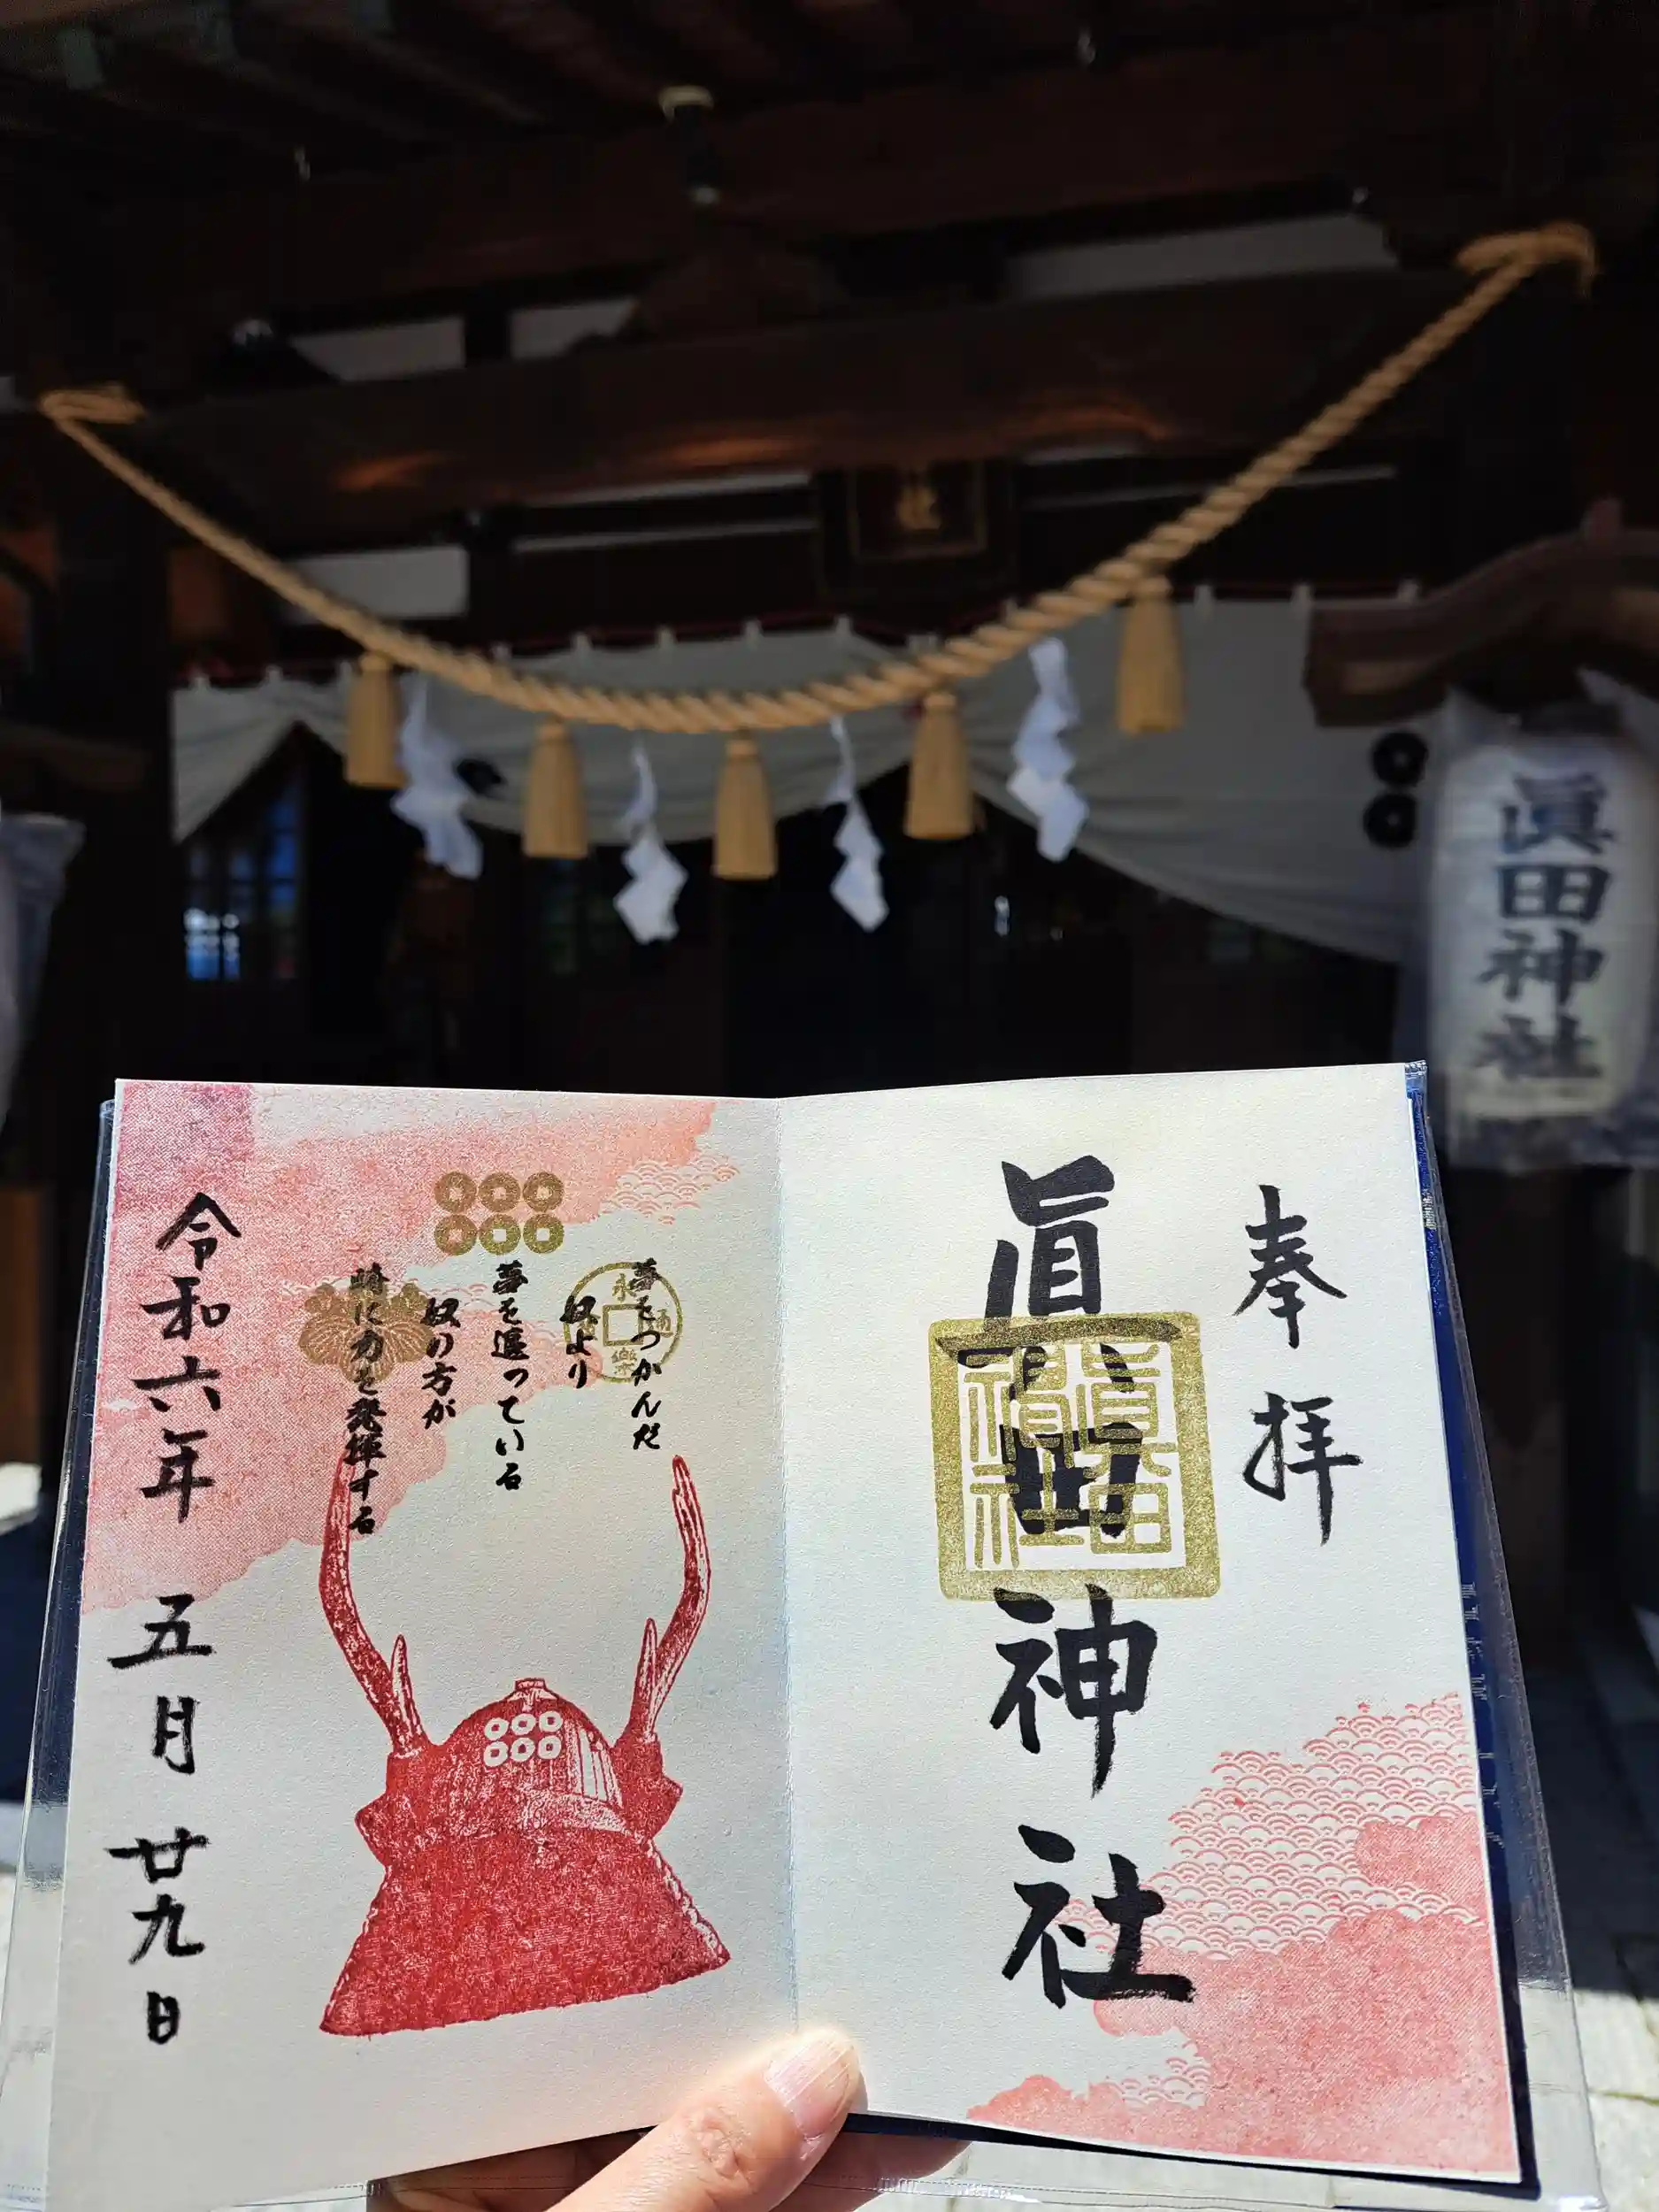 奉拝
眞田神社
眞田神社
夢をつかんだ
奴より
夢を追っている
奴の方が
時に力を発揮する
令和六年 五月 廿九日
眞田神社